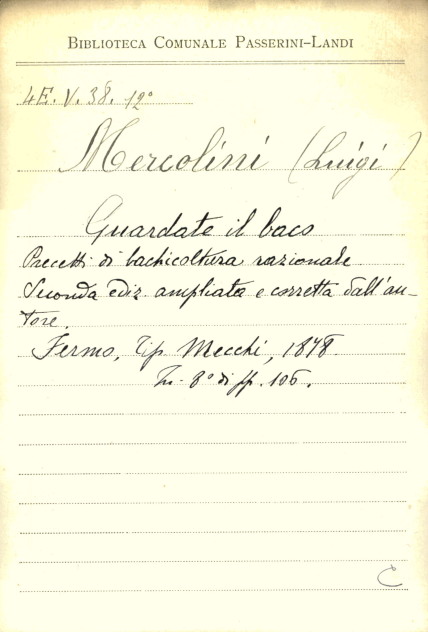 BIBLIOTECA COMUNALE PASSERINI-LANDI
4E. V. 38. 12°
Mercolini (Luigi)
Guardate il baco
Precetti di bachicoltura razionale
Seconda ediz ampliata e corretta dall'au-
tore.
Fermo, Tip. Mecchi, 1878.
In-8° di pp. 106.
C